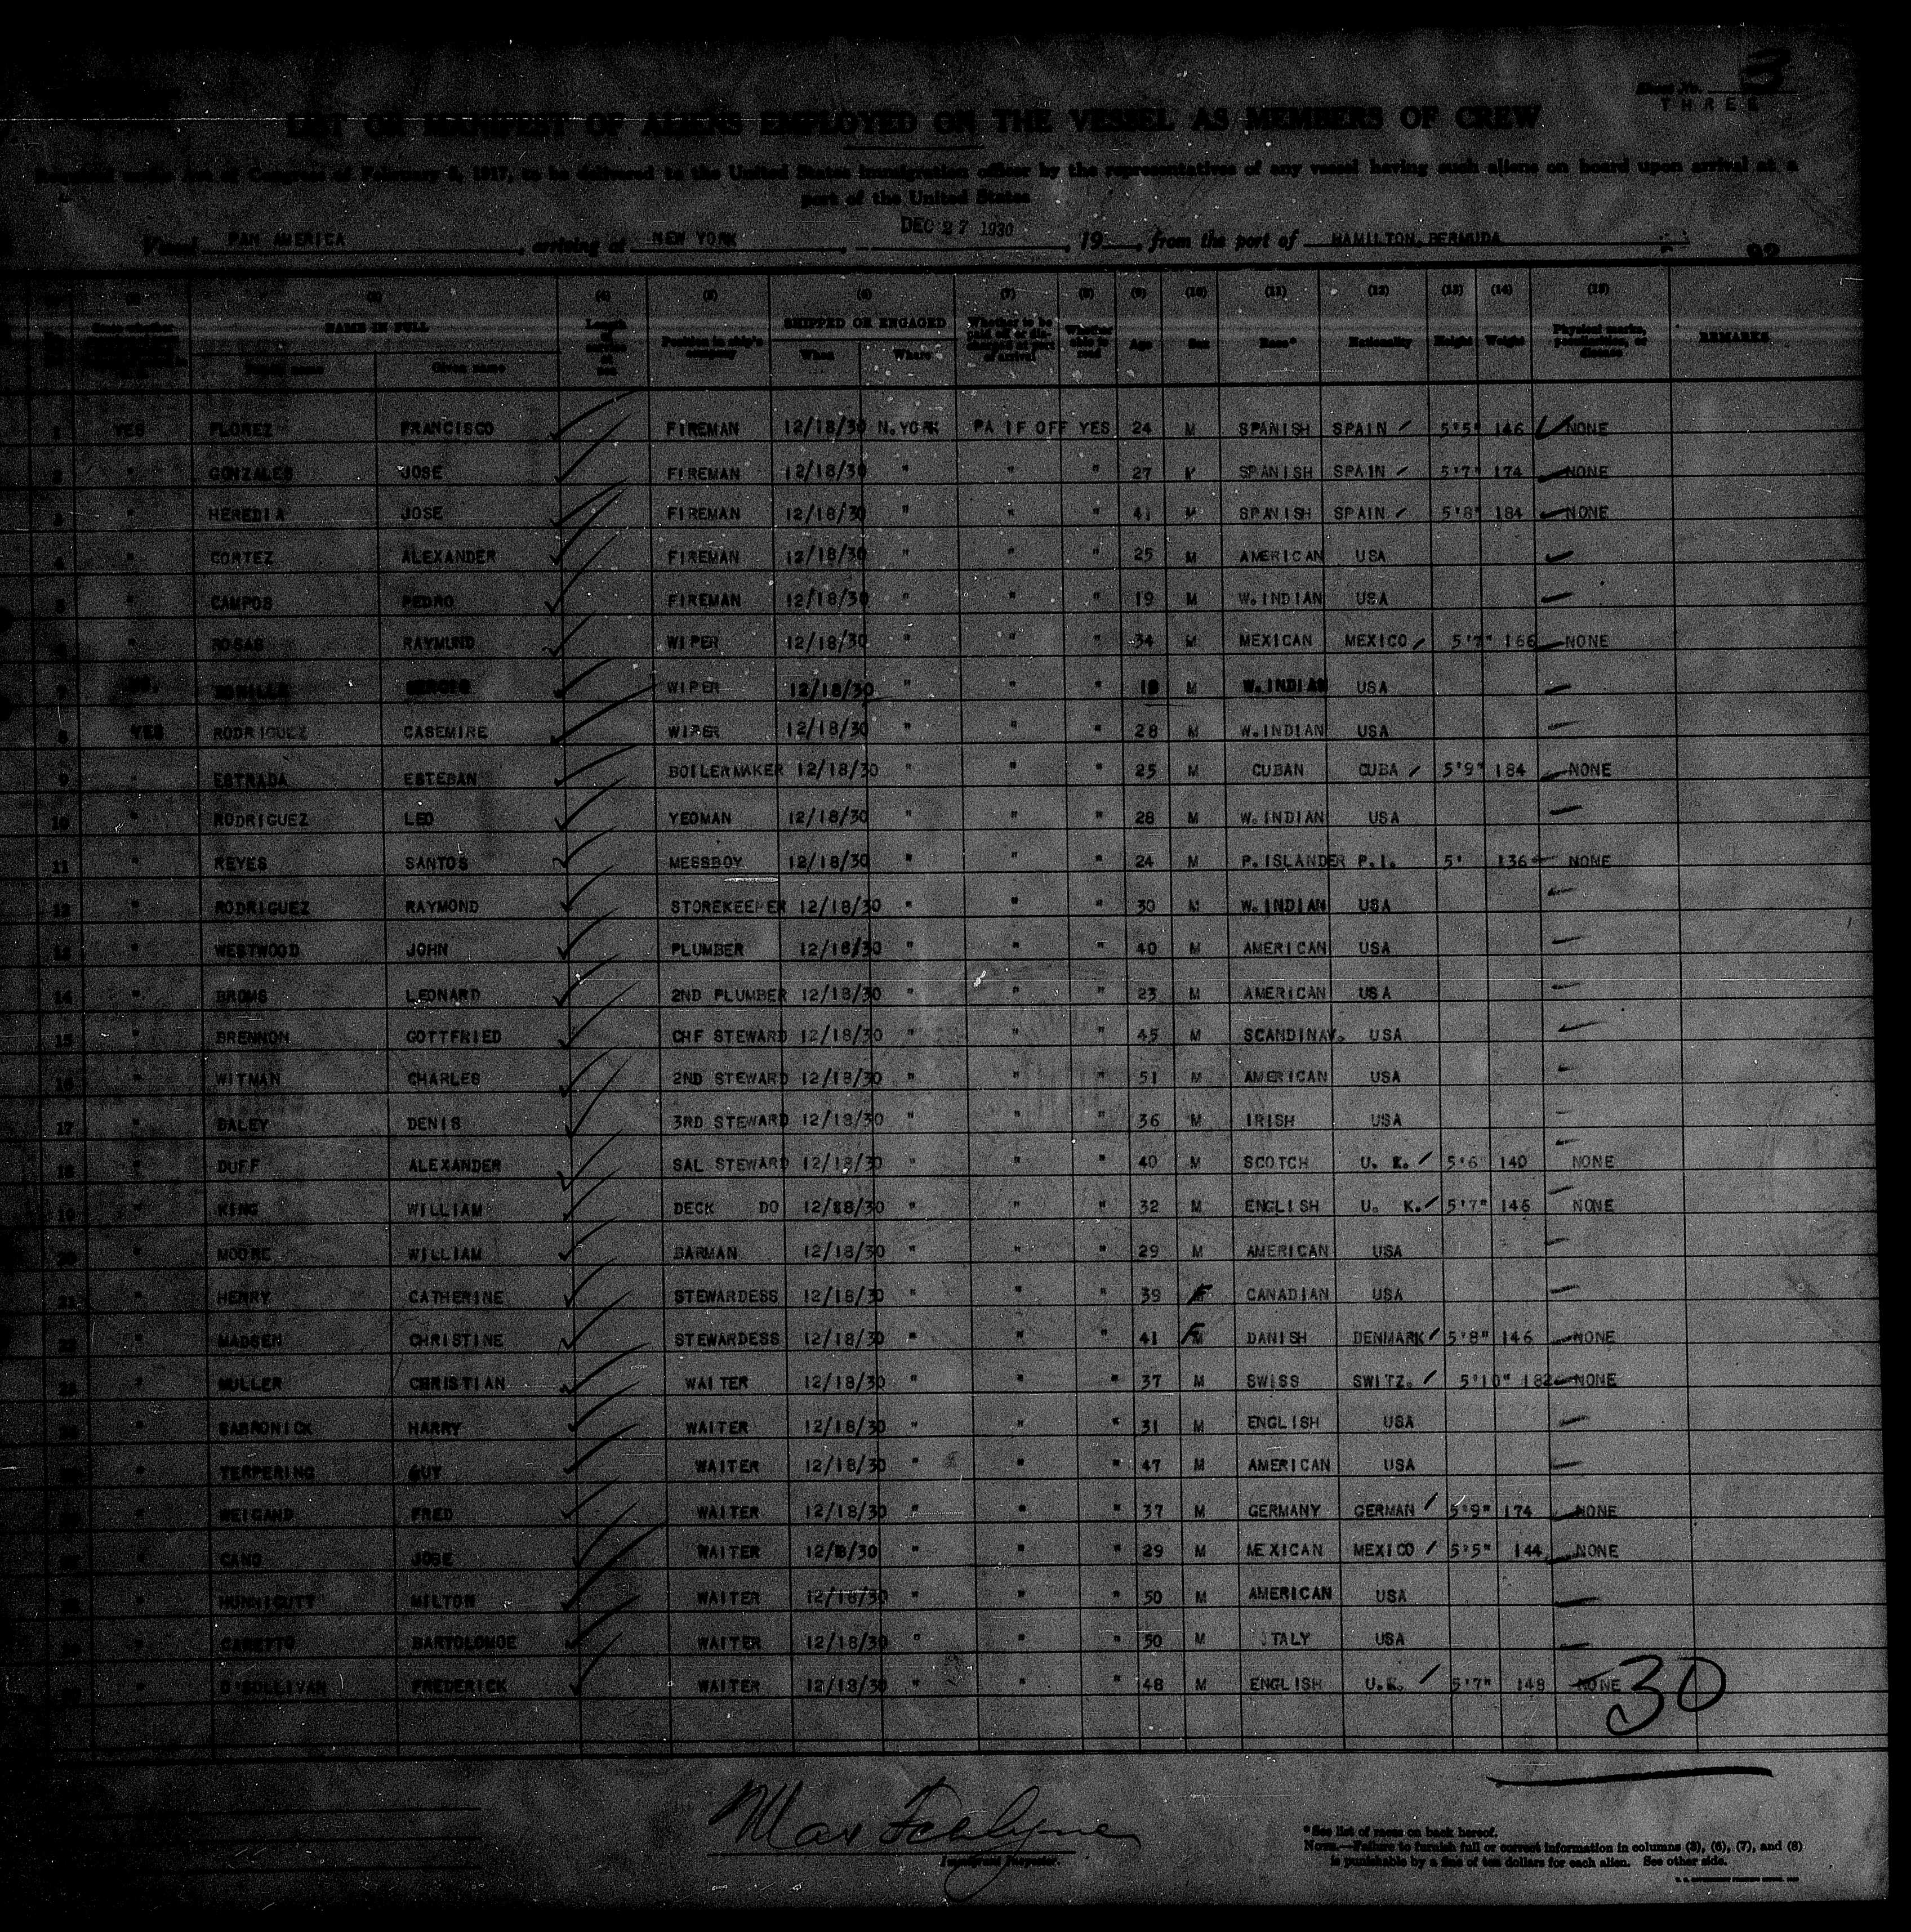 3
Sheet No.
THREE
LIST OR MANIFEST OF ALIENS EMPLOYED ON THE VESSEL AS MEMBERS OF CREW
Required under Act of Congress of February 5, 1917, to be delivered to the United States immigration officer by the representatives of any vessel having such aliens on board upon arrival at a
port of the United States
Vessel PAN AMERICA, arriving at NEW YORK, DEC 27 1930, 19, from the port of HAMILTON, BERMUDA
(3) (4) (5) (6) (7) (8) (9) (10) (11) (12) (13) (14) (15)
NAME IN FULL Position in ship's company SHIPPED OR ENGAGED When Where Whether to be paid off or discharged at port of arrival Whether able to read Age Sex Race* Nationality Height Weight Physical marks, peculiarities, or disease REMARKS
Family name Given name
1 YES FLOREZ FRANCISCO FIREMAN 12/18/30 N.YORK PA IF OFF YES 24 M SPANISH SPAIN 5'5" 146 NONE
2 " GONZALES JOSE FIREMAN 12/18/30 " " " 27 M SPANISH SPAIN 5'7" 174 NONE
3 " HEREDIA JOSE FIREMAN 12/18/30 " " " 41 M SPANISH SPAIN 5'8" 184 NONE
4 " CORTEZ ALEXANDER FIREMAN 12/18/30 " " " 25 M AMERICAN USA
5 " CAMPOS PEDRO FIREMAN 12/18/30 " " " 19 M W.INDIAN USA
6 " ROSAS RAYMUND WIPER 12/18/30 " " " 34 M MEXICAN MEXICO 5'7" 166 NONE
7 WIPER 12/18/30 " " " 18 M W.INDIAN USA
8 YES RODRIGUEZ CASEMIRE WIPER 12/18/30 " " " 28 M W.INDIAN USA
9 " ESTRADA ESTEBAN BOILERMAKER 12/18/30 " " " 25 M CUBAN CUBA 5'9" 184 NONE
10 " RODRIGUEZ LEO YEOMAN 12/18/30 " " " 28 M W.INDIAN USA
11 " REYES SANTOS MESSBOY 12/18/30 " " " 24 M P.ISLANDER P.I. 5' 136 NONE
12 " RODRIGUEZ RAYMOND STOREKEEPER 12/18/30 " " " 30 M W.INDIAN USA
13 " WESTWOOD JOHN PLUMBER 12/18/30 " " " 40 M AMERICAN USA
14 " BROMS LEONARD 2ND PLUMBER 12/18/30 " " " 23 M AMERICAN USA
15 " BRENNON GOTTFRIED CHF STEWARD 12/18/30 " " " 45 M SCANDINAV. USA
16 " WITMAN CHARLES 2ND STEWARD 12/18/30 " " " 51 M AMERICAN USA
17 " DALEY DENIS 3RD STEWARD 12/18/30 " " " 36 M IRISH USA
18 " DUFF ALEXANDER SAL STEWARD 12/18/30 " " " 40 M SCOTCH U. K. 5'6" 140 NONE
19 " KING WILLIAM DECK DO 12/88/30 " " " 32 M ENGLISH U. K. 5'7" 146 NONE
20 " MOORE WILLIAM BARMAN 12/18/30 " " " 29 M AMERICAN USA
21 " HENRY CATHERINE STEWARDESS 12/18/30 " " " 39 F CANADIAN USA
22 " MADSEN CHRISTINE STEWARDESS 12/18/30 " " " 41 F DANISH DENMARK 5'8" 146 NONE
23 " MULLER CHRISTIAN WAITER 12/18/30 " " " 37 M SWISS SWITZ. 5'10" 182 NONE
24 " BARRONICK HARRY WAITER 12/18/30 " " " 31 M ENGLISH USA
25 " TERPERING GUY WAITER 12/18/30 " " " 47 M AMERICAN USA
26 " WEIGAND FRED WAITER 12/18/30 " " " 37 M GERMANY GERMAN 5'9" 174 NONE
27 " CANO JOSE WAITER 12/8/30 " " " 29 M MEXICAN MEXICO 5'5" 144 NONE
28 " HUNNICUTT MILTON WAITER 12/18/30 " " " 50 M AMERICAN USA
29 " CANETTO BARTOLOMOE WAITER 12/18/30 " " " 50 M ITALY USA
30 " O'SULLIVAN FREDERICK WAITER 12/18/30 " " " 48 M ENGLISH U.K. 5'7" 148 NONE
30
Immigrant Inspector.
*See list of races on back hereof.
NOTE.—Failure to furnish full or correct information in columns (3), (6), (7), and (8)
is punishable by a fine of ten dollars for each alien. See other side.